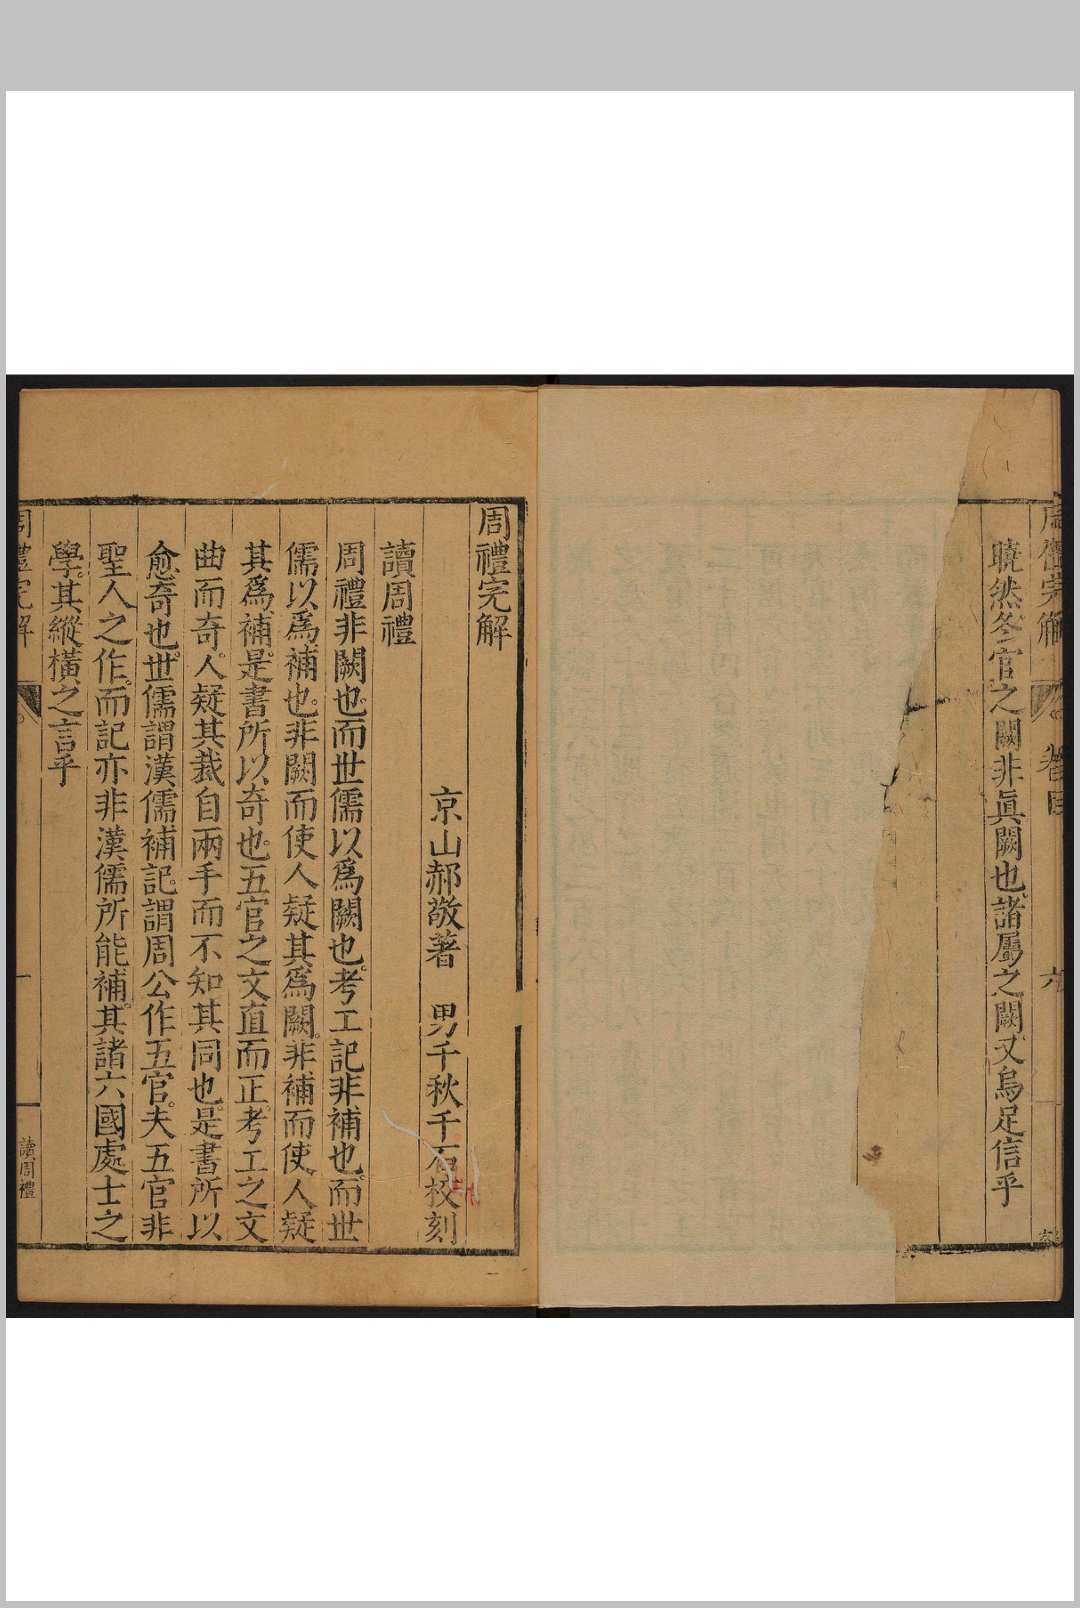 周禮完解
卷目
六
曉然冬官之闕非眞闕也諸屬之闕又烏足信乎
周禮完解
京山郝敬著　男千秋千石校刻
讀周禮
周禮非闕也。而世儒以爲闕也。考工記非補也。而世
儒以爲補也。非闕而使人疑其爲闕。非補而使人疑
其爲補。是書所以奇也。五官之文直而正。考工之文
曲而奇。人疑其裁自兩手而不知其同也。是書所以
愈奇也。世儒謂漢儒補記。謂周公作五官。夫五官非
聖人之作。而記亦非漢儒所能補。其諸六國處士之
學。其縱橫之言乎
周禮完解
讀周禮